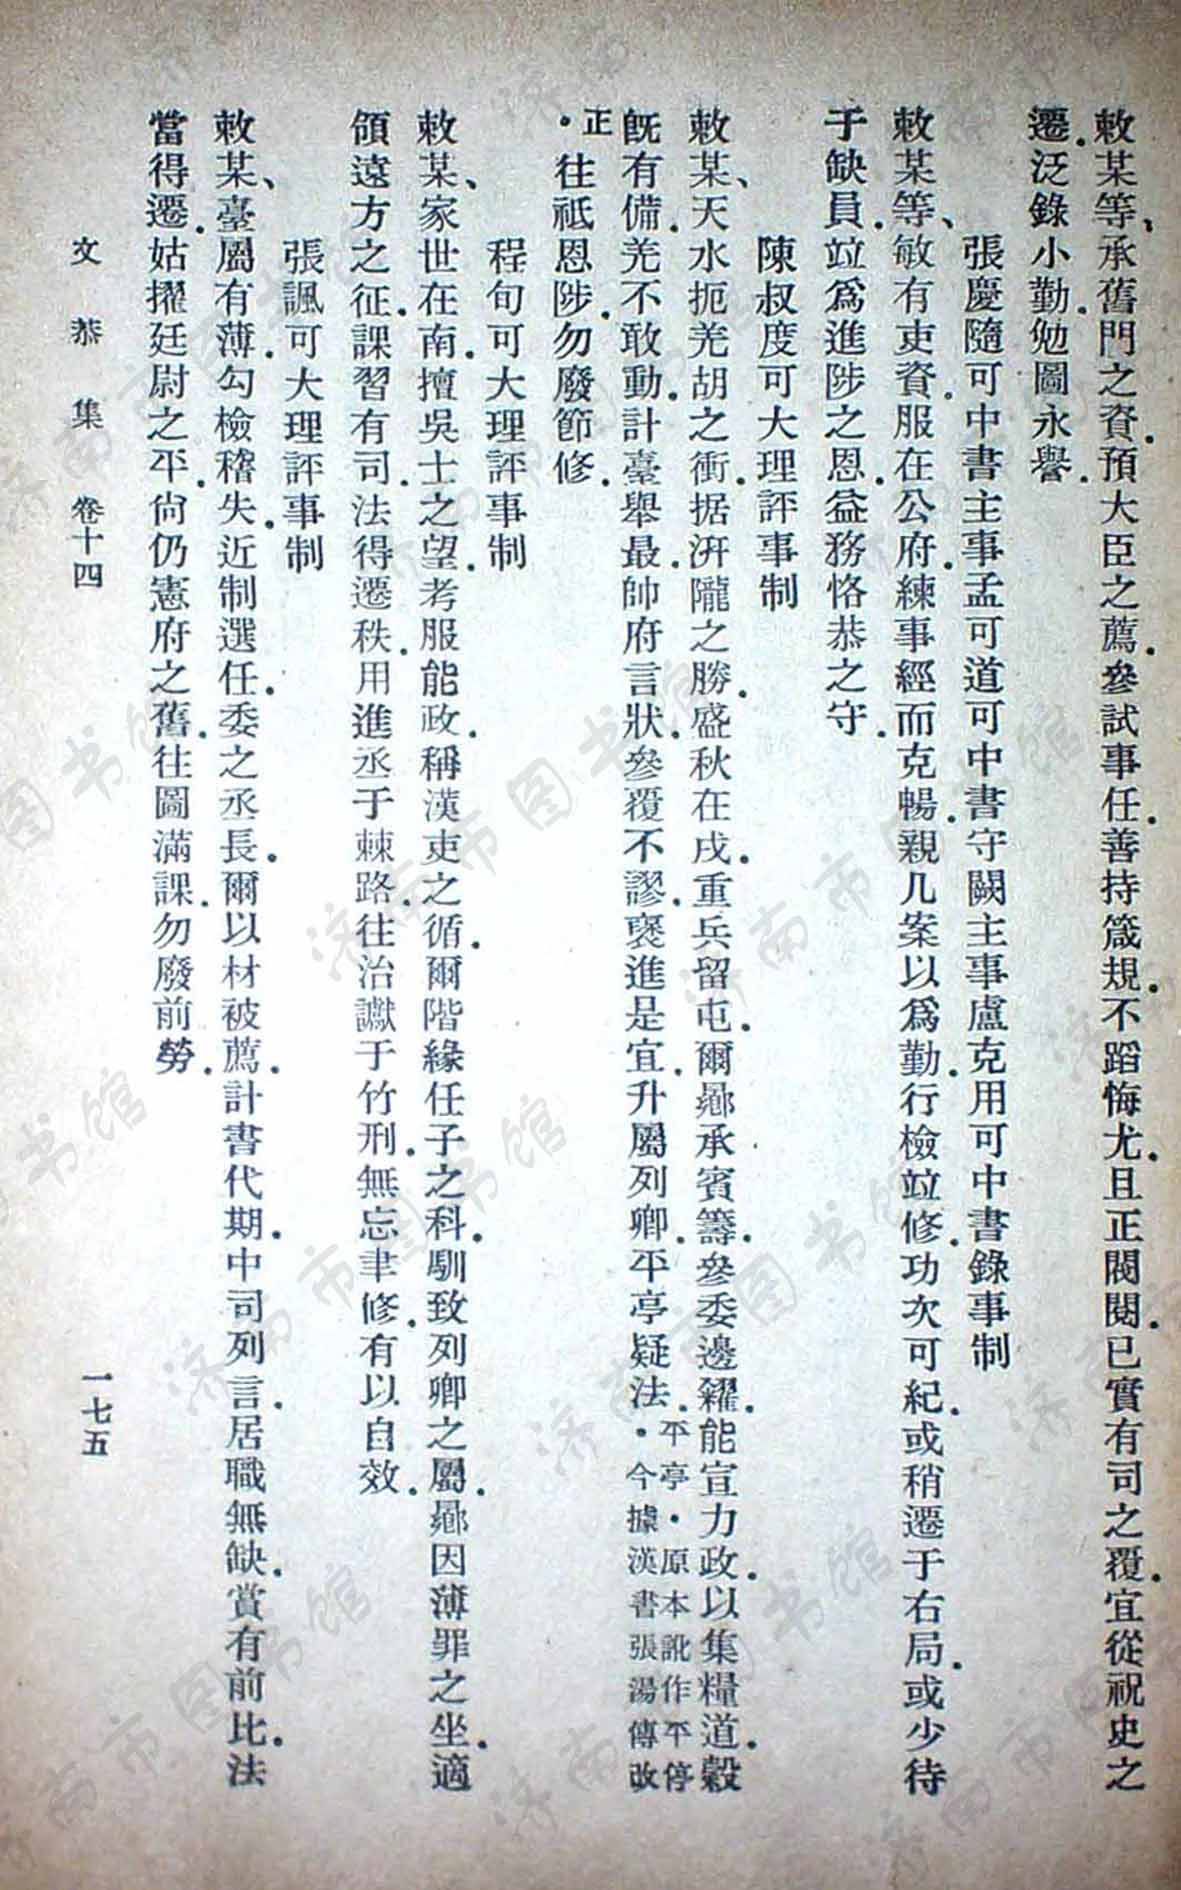 敕某等、承舊門之資．預大臣之薦．參試事任．善持箴規．不蹈悔尤．且正閥閱．已實有司之覆．宜從祝史之
遷．泛錄小勤．勉圖永譽．
張慶隨可中書主事孟可道可中書守闕主事盧克用可中書錄事制
敕某等、敏有吏資．服在公府．練事經而克暢．親几案以爲勤．行檢竝修．功次可紀．或稍遷于右局．或少待
于缺員．竝爲進陟之恩．益務恪恭之守．
陳叔度可大理評事制
敕某、天水扼羌胡之衝．据汧隴之勝．盛秋在戍．重兵留屯．爾曏承賓籌．參委邊糴．能宣力政．以集糧道．穀
旣有備．羌不敢動．計臺舉最．帥府言狀．參覆不謬．褒進是宜．升屬列卿．平亭疑法．平亭．原本訛作平停．今據漢書張湯傳改
正．往祗恩陟．勿廢節修．
程旬可大理評事制
敕某、家世在南．擅吳士之望．考服能政．稱漢吏之循．爾階緣任子之科．馴致列卿之屬．曏因薄罪之坐．適
領遠方之征．課習有司．法得遷秩．用進丞于棘路．往治讞于竹刑．無忘聿修．有以自效．
張諷可大理評事制
敕某、臺屬有薄．勾檢稽失．近制選任．委之丞長．爾以材被薦．計書代期．中司列言．居職無缺．賞有前比．法
當得遷．姑擢廷尉之平．尙仍憲府之舊．往圖滿課．勿廢前勞．
文恭集 卷十四 一七五
济南市图书馆